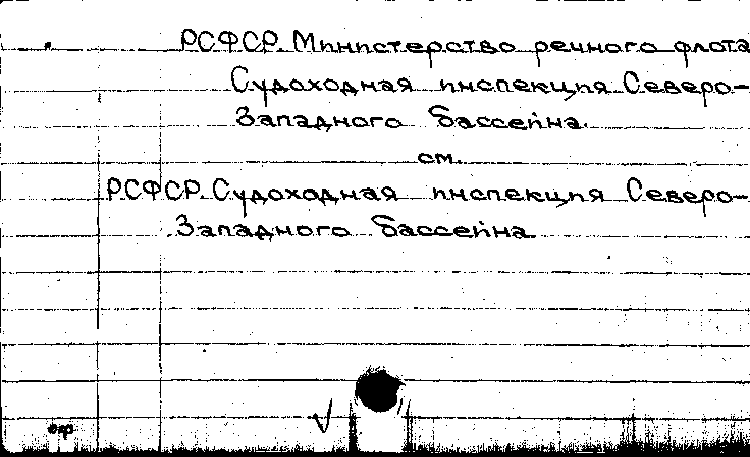 РСФСР. Министерство речного флота
Судоходная инспекция Северо-
Западного бассейна.
см.
РСФСР. Судоходная инспекция Северо-
Западного бассейна